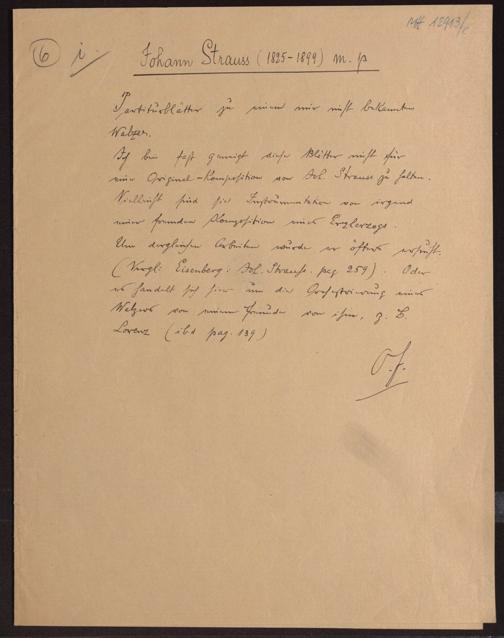 MH 12913/c
6 i.
Johann Strauss (1825-1899) m. p
Partiturblätter zu einem mir nicht bekannten
Walzer.
Ich bin fast geneigt diese Blätter nicht für
eine Original-Komposition von Joh. Strauss zu halten.
Vielleicht sind sie Instrumentation von irgend
einer fremden Komposition eines Erzherzogs.
Um dergleichen Arbeiten wurde er öfters ersucht.
(Vergl: Eisenberg: Joh. Strauss. pag 259). Oder
es handelt sich hier um die Orchestrierung eines
Walzers von einem Freunde von ihm, z. B.
Lorenz (ibd pag. 139)
O. f.